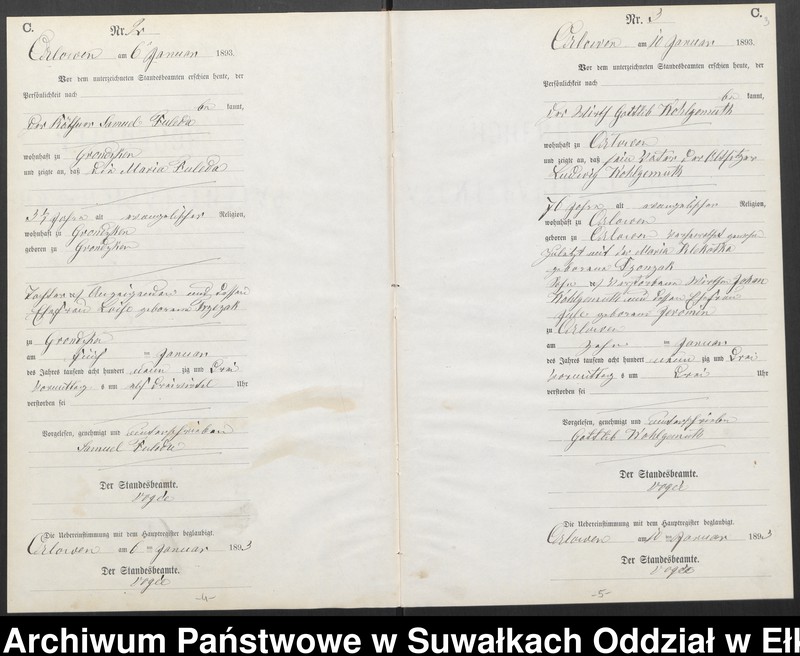 C.
Nr. 2
Orlowen am 6 Januar 1893.
Vor dem unterzeichneten Standesbeamten erschien heute, der
Persönlichkeit nach
be kannt,
der Käthner Samuel
wohnhaft zu Grondzken
und zeigte an, daß die Maria
37 Jahre alt evangelischer Religion,
wohnhaft zu Grondzken
geboren zu Grondzken
Tochter des Anzeigenden und dessen
Ehefrau geborene
zu Grondzken
am fünf ten Januar
des Jahres tausend acht hundert neun zig und drei
Vormittag s um elf dreiviertel Uhr
verstorben sei
Vorgelesen, genehmigt und unterschrieben
Samuel
Der Standesbeamte.
Vogel
Die Uebereinstimmung mit dem Hauptregister beglaubigt.
Orlowen am 6 ten Januar 1893
Der Standesbeamte.
Vogel
-4-
C.
3
Nr. 3
Orlowen am 10 Januar 1893.
Vor dem unterzeichneten Standesbeamten erschien heute, der
Persönlichkeit nach
be kannt,
der Wirth Gottlieb Kohlgemuth
wohnhaft zu Orlowen
und zeigte an, daß sein Vater der Altsitzer
Ludwig Kohlgemuth
76 Jahre alt evangelischer Religion,
wohnhaft zu Orlowen
geboren zu Orlowen verheirathet gewesen
zuletzt mit der Maria
geborene
Sohn des verstorbenen Wirthen Johan
Kohlgemuth und dessen Ehefrau
geborene Jeromin
zu Orlowen
am zehn ten Januar
des Jahres tausend acht hundert neun zig und drei
Vormittag s um drei Uhr
verstorben sei
Vorgelesen, genehmigt und unterschrieben
Gottlieb Kohlgemuth
Der Standesbeamte.
Vogel
Die Uebereinstimmung mit dem Hauptregister beglaubigt.
Orlowen am 10 ten Januar 1893
Der Standesbeamte.
Vogel
-5-
Archiwum Państwowe w Suwałkach Oddział w Ełk